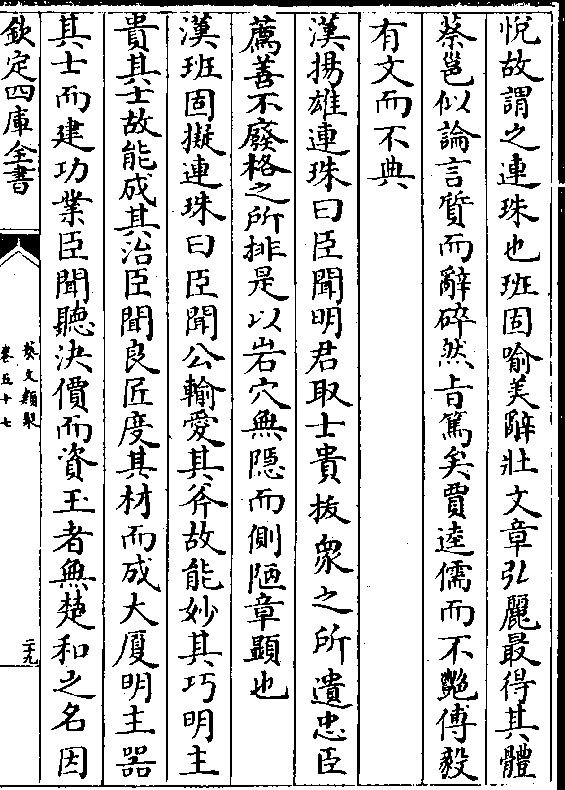 悅故謂之連珠也班固喻美辭壯文章弘麗最得其體
蔡邕似論言質而辭碎然㫖篤矣賈逵儒而不豔傅毅
有文而不典
漢揚雄連珠曰臣聞明君取士貴拔眾之所遺忠臣
薦善不廢格之所排是以岩穴無隱而側陋章顯也
漢班固擬連珠曰臣聞公輸愛其斧故能妙其巧明主
貴其士故能成其治臣聞良匠度其材而成大厦明主器
其士而建功業臣聞聽決價而資玉者無楚和之名因
欽定四庫全書
藝文類聚
卷五十七
二十九